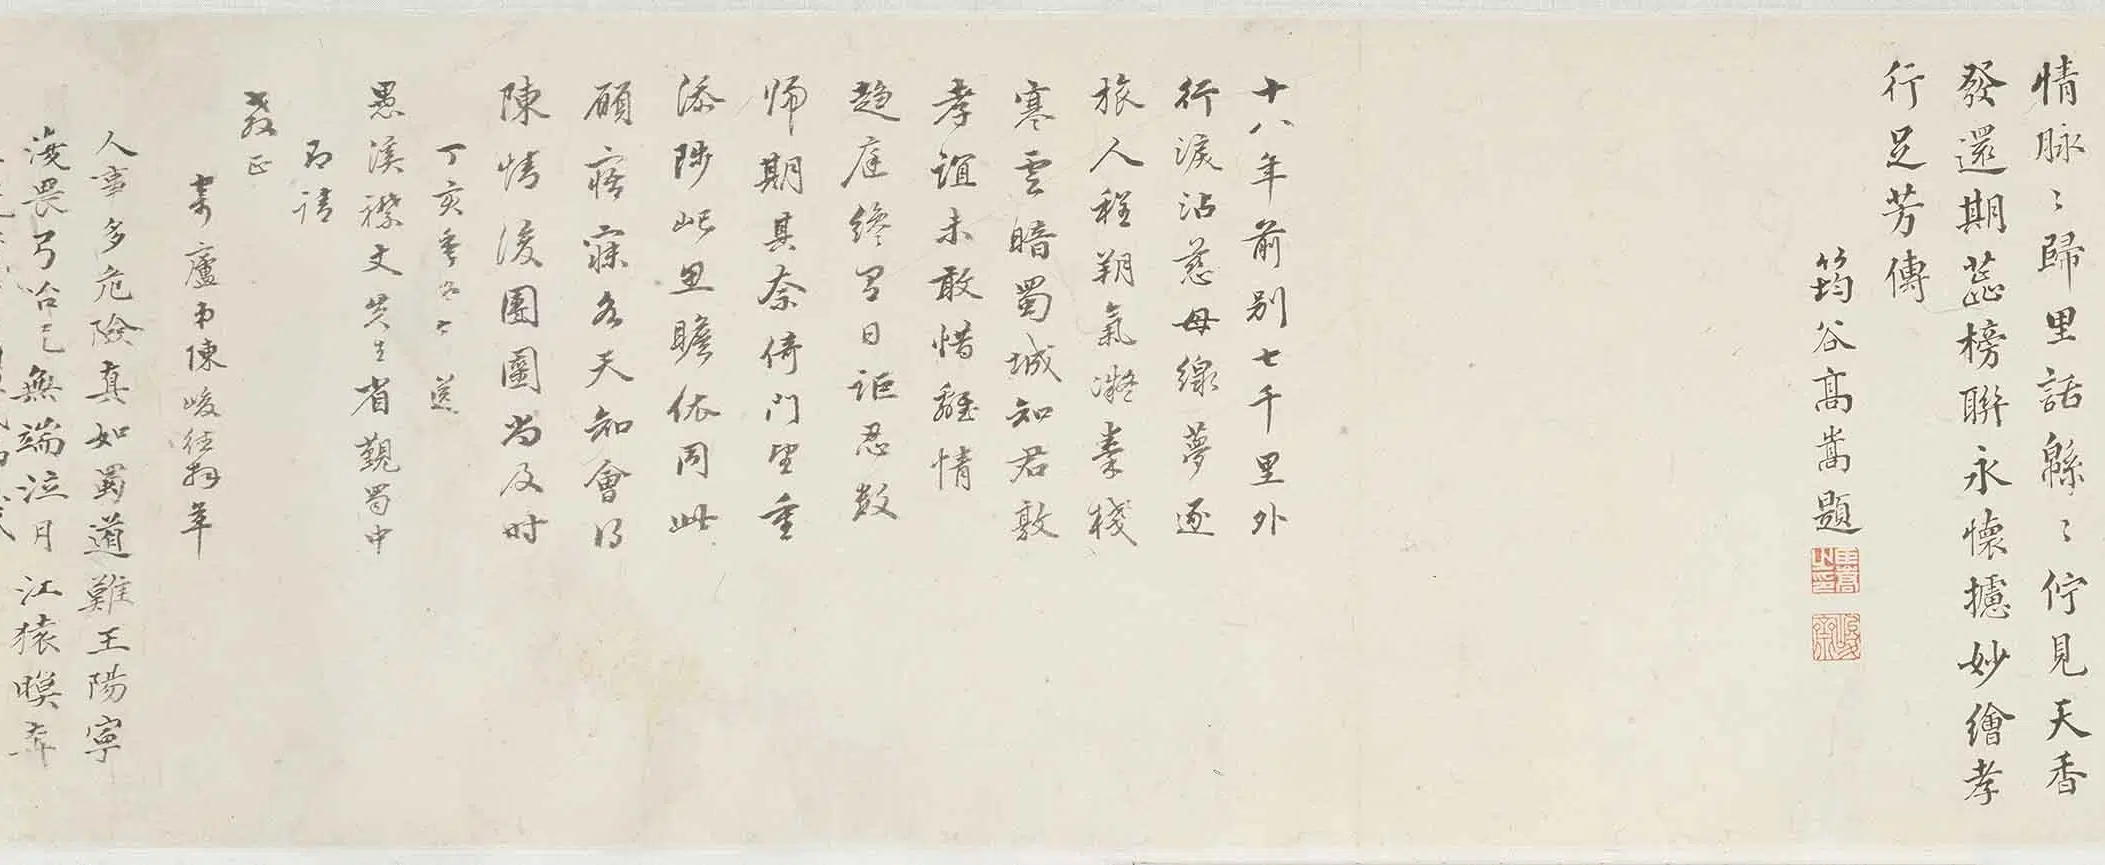 情脉〻歸里話緜〻佇見天香
發還期蕋榜聯永懷攄妙繪孝
行足芳傳
筠谷高嵩題
十八年前别七千里外
行淚沾慈母線夢逐
旅人程朔氣凝秦棧
寒雲暗蜀城知君敦
孝誼未敢惜離情
趋庭終有日詎忍數
歸期其奈倚門望重
添陟岵思瞻依同此
願寤寐各天知會得
陳情後團圞尚及时
丁亥季 送
愚溪襟丈先生省覲蜀中
即請
教正
弟陳峻
人事多危險真如蜀道難王陽寧
畏弓冶已無端泣月江猿暝